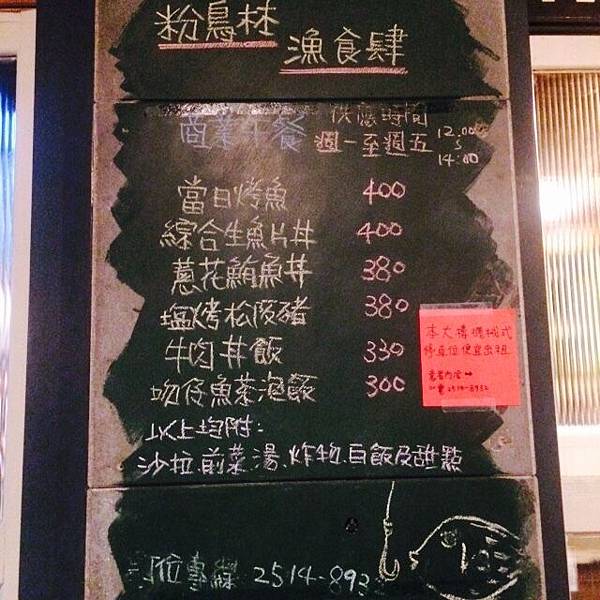 粉鳥林
漁食肆
商業午餐
供應時間
週一至週五
12:00
14:00
當日烤魚 400
綜合生魚片丼 400
蔥花鮪魚丼 380
塩烤松阪豬 380
牛肉丼飯 330
吻仔魚菜泡飯 300
以上均附:
沙拉、前菜、湯、炸物、白飯及甜點
本大樓機械式
停車位便宜出租
意者內洽→
訂位專線 2514-893